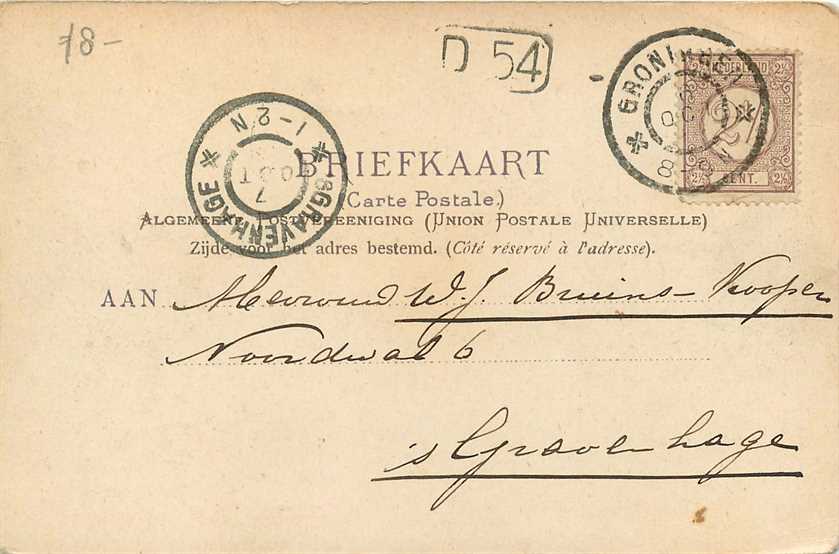 78-
D 54
GRONINGEN
OCT
8-9N
NEDERLAND
2½
2½
2½ CENT. 2½
1-2N
7 OCT
'SGRAVENHAGE
BRIEFKAART
(Carte Postale.)
ALGEMEENE POSTVEREENIGING (UNION POSTALE UNIVERSELLE)
Zijde voor het adres bestemd. (Côté réservé à l'adresse).
AAN Mevrouw W. J. Bruins-Kooper
Noordwal 6
's Gravenhage